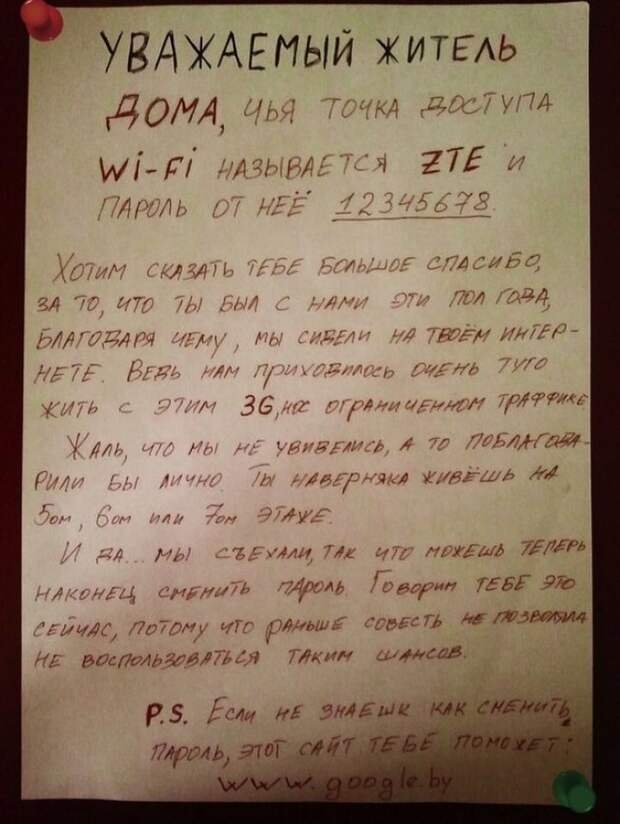 УВАЖАЕМЫЙ ЖИТЕЛЬ
ДОМА, ЧЬЯ ТОЧКА ДОСТУПА
Wi-Fi НАЗЫВАЕТСЯ ZTE И
ПАРОЛЬ ОТ НЕЁ 12345678.
ХОТИМ СКАЗАТЬ ТЕБЕ БОЛЬШОЕ СПАСИБО,
ЗА ТО, ЧТО ТЫ БЫЛ С НАМИ ЭТИ ПОЛ ГОДА,
БЛАГОДАРЯ ЧЕМУ, МЫ СИДЕЛИ НА ТВОЁМ ИНТЕР-
НЕТЕ. ВЕДЬ НАМ ПРИХОДИЛОСЬ ОЧЕНЬ ТУГО
ЖИТЬ С ЭТИМ 3G, ОГРАНИЧЕННОМ ТРАФФИКЕ
ЖАЛЬ, ЧТО МЫ НЕ УВИДЕЛИСЬ, А ТО ПОБЛАГОДА-
РИЛИ БЫ ЛИЧНО. ТЫ НАВЕРНЯКА ЖИВЁШЬ НА
5ом, 6ом ИЛИ 7ом ЭТАЖЕ.
И ДА... МЫ СЪЕХАЛИ, ТАК ЧТО МОЖЕШЬ ТЕПЕРЬ
НАКОНЕЦ СМЕНИТЬ ПАРОЛЬ. ГОВОРИМ ТЕБЕ ЭТО
СЕЙЧАС, ПОТОМУ ЧТО РАНЬШЕ СОВЕСТЬ НЕ ПОЗВОЛЯЛА
НЕ ВОСПОЛЬЗОВАТЬСЯ ТАКИМ ШАНСОВ.
P.S. ЕСЛИ НЕ ЗНАЕШЬ КАК СМЕНИТЬ
ПАРОЛЬ, ЭТОТ САЙТ ТЕБЕ ПОМОЖЕТ:
www.google.by